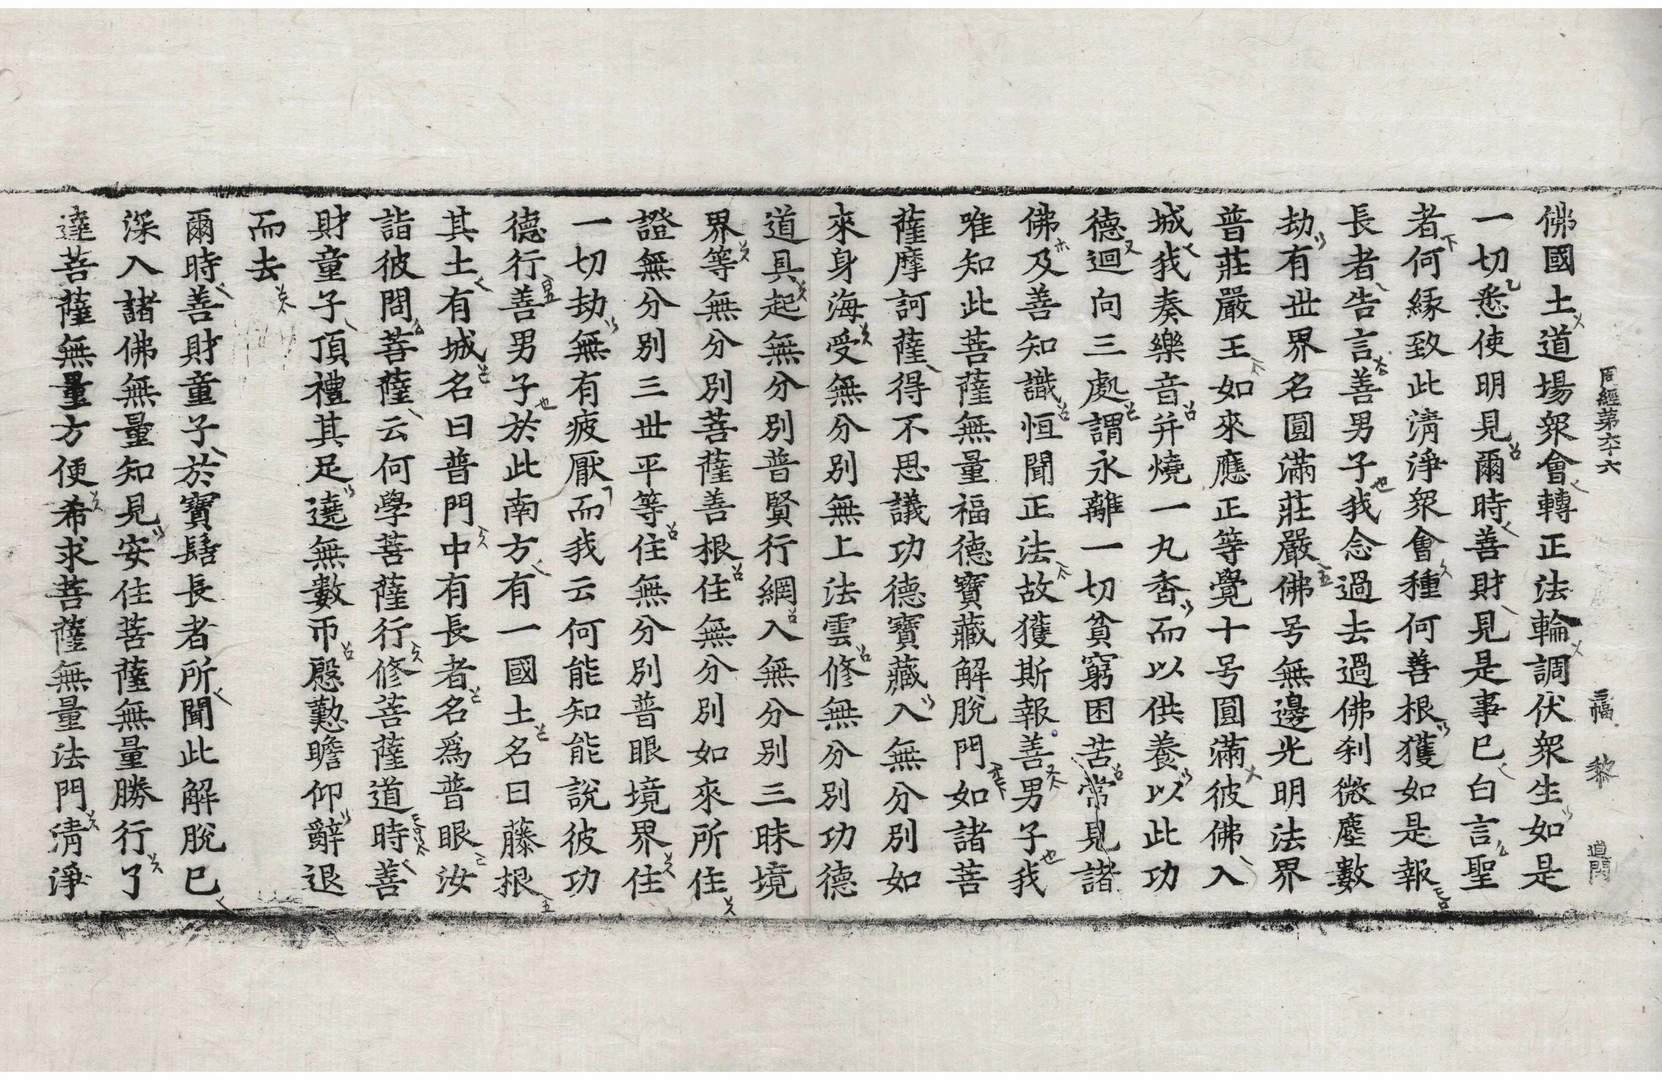 周經第六十六 三幅 黎 道閑
佛國土道場衆會轉正法輪調伏衆生如是
一切悉使明見爾時善財見是事已白言聖
者何緣致此淸淨衆會種何善根獲如是報
長者告言善男子我念過去過佛刹微塵數
劫有世界名圓滿莊嚴佛号無邊光明法界
普莊嚴王如來應正等覺十号圓滿彼佛入
城我奏樂音并燒一丸香而以供養以此功
德迴向三處謂永離一切貧窮困苦常見諸
佛及善知識恒聞正法故獲斯報善男子我
唯知此菩薩無量福德寶藏解脫門如諸菩
薩摩訶薩得不思議功德寶藏入無分別如
來身海受無分別無上法雲修無分別功德
道具起無分別普賢行網入無分別三昧境
界等無分別菩薩善根住無分別如來所住
證無分別三世平等住無分別普眼境界住
一切劫無有疲厭而我云何能知能說彼功
德行善男子於此南方有一國土名曰藤根
其土有城名曰普門中有長者名爲普眼汝
詣彼問菩薩云何學菩薩行修菩薩道時善
財童子頂禮其足遶無數帀慇懃瞻仰辭退
而去
爾時善財童子於寶髻長者所聞此解脫已
深入諸佛無量知見安住菩薩無量勝行了
達菩薩無量方便希求菩薩無量法門淸淨